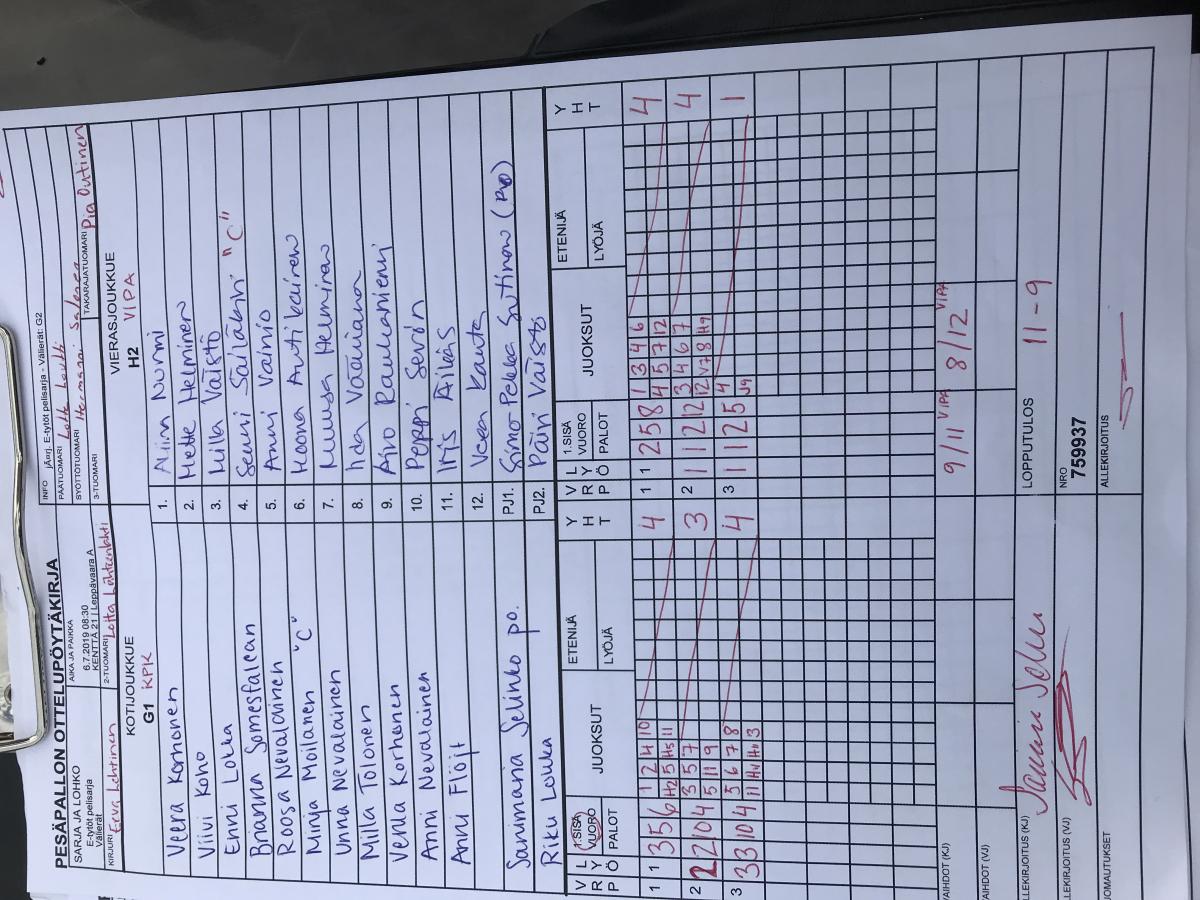 PESÄPALLON OTTELUPÖYTÄKIRJA
SARJA JA LOHKO
E-tytöt pelisarja
Välierät
AIKA JA PAIKKA
6.7.2019 08:30
KENTTÄ 21 | Leppävaara A
INFO
E-tytöt pelisarja - Välierät: G2
PÄÄTUOMARI Lotte Leutti
SYÖTTÖTUOMARI
KIRJURI Erva Lehtinen
2-TUOMARI Lotta Lähteenlahti
3-TUOMARI
TAKARAJATUOMARI Pia Outinen
KOTIJOUKKUE
G1 KPK
VIERASJOUKKUE
H2 VIPA
Veera Korhonen
Viivi Koho
Enni Lokka
Brianna Somesfalean
Roosa Nevalainen
Minja Moilanen "C"
Unna Nevalainen
Milla Tolonen
Venla Korhonen
Anni Nevalainen
Anni Flöjt
Sanimaria Selinko po.
Riku Louka
1. Aliina Nurmi
2. Hette Helminen
3. Milla Väistö
4. Senni Säiläkivi "C"
5. Anni Vainio
6. Noona Antikainen
7. Muusa Helminen
8. Iida Väänänen
9. Aino Rauhaniemi
10. Peppi Sevón
11. Iris Äikäs
12. Veera Kauta
PJ1. Simo-Pekka Sutinen (PO)
PJ2. Päivi Väistö
V R P
L Y Ö
1. SISÄ VUORO
PALOT
JUOKSUT
ETENIJÄ
LYÖJÄ
Y H T
V R P
L Y Ö
1. SISÄ VUORO
PALOT
JUOKSUT
ETENIJÄ
LYÖJÄ
Y H T
1 1 3 5 6 1 2 4 10 4
H2 5 H5 11
2 2 2 10 4 3 5 7 3
5 11 9
3 3 3 10 4 5 6 7 8 4
11 H11 H11 3
1 1 2 5 8 1 3 4 6 4
4 5 7 12
2 1 1 2 12 3 4 6 7 4
12 V7 8 H9
3 1 1 2 5 4 1
J9
VAIHDOT (KJ)
9/11 VIPA 8/12 VIPA
VAIHDOT (VJ)
ALLEKIRJOITUS (KJ)
LOPPUTULOS 11 - 9
ALLEKIRJOITUS (VJ)
NRO
759937
HUOMAUTUKSET
ALLEKIRJOITUS